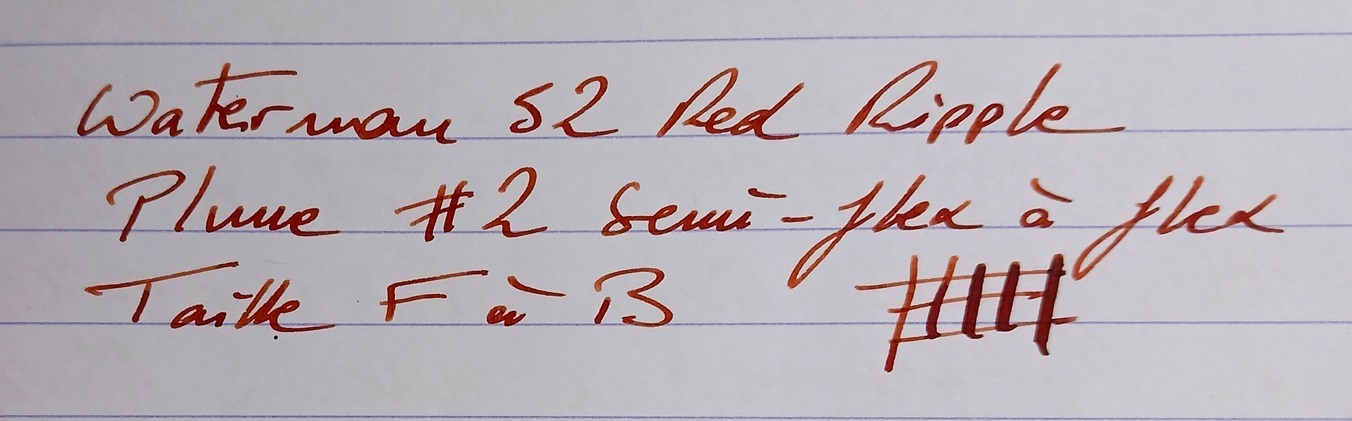 Waterman 52 Red Ripple
Plume #2 Semi-flex à flex
Taille F à B